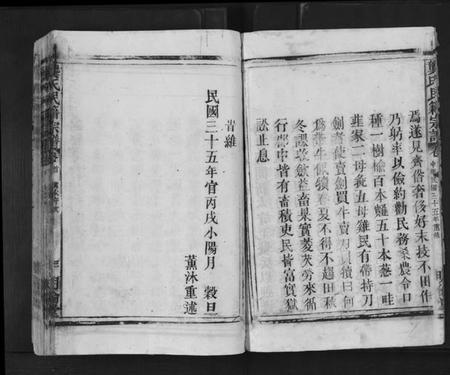 焉遂見齊俗奢侈好末技不田作
乃躬率以儉約勸民務農桑令口
種一樹榆百本䪥五十本葱一畦
韭家二母彘五母雞民有帶持刀
劍者使賣劍買牛賣刀買犢曰何
為帶牛佩犢春夏不得不趨田畝
冬課收斂益畜果實菱芡勞來循
行郡中皆有畜積吏民皆富實獄
訟止息
民國三十五年官丙戌小陽月 穀日
薰沐重述